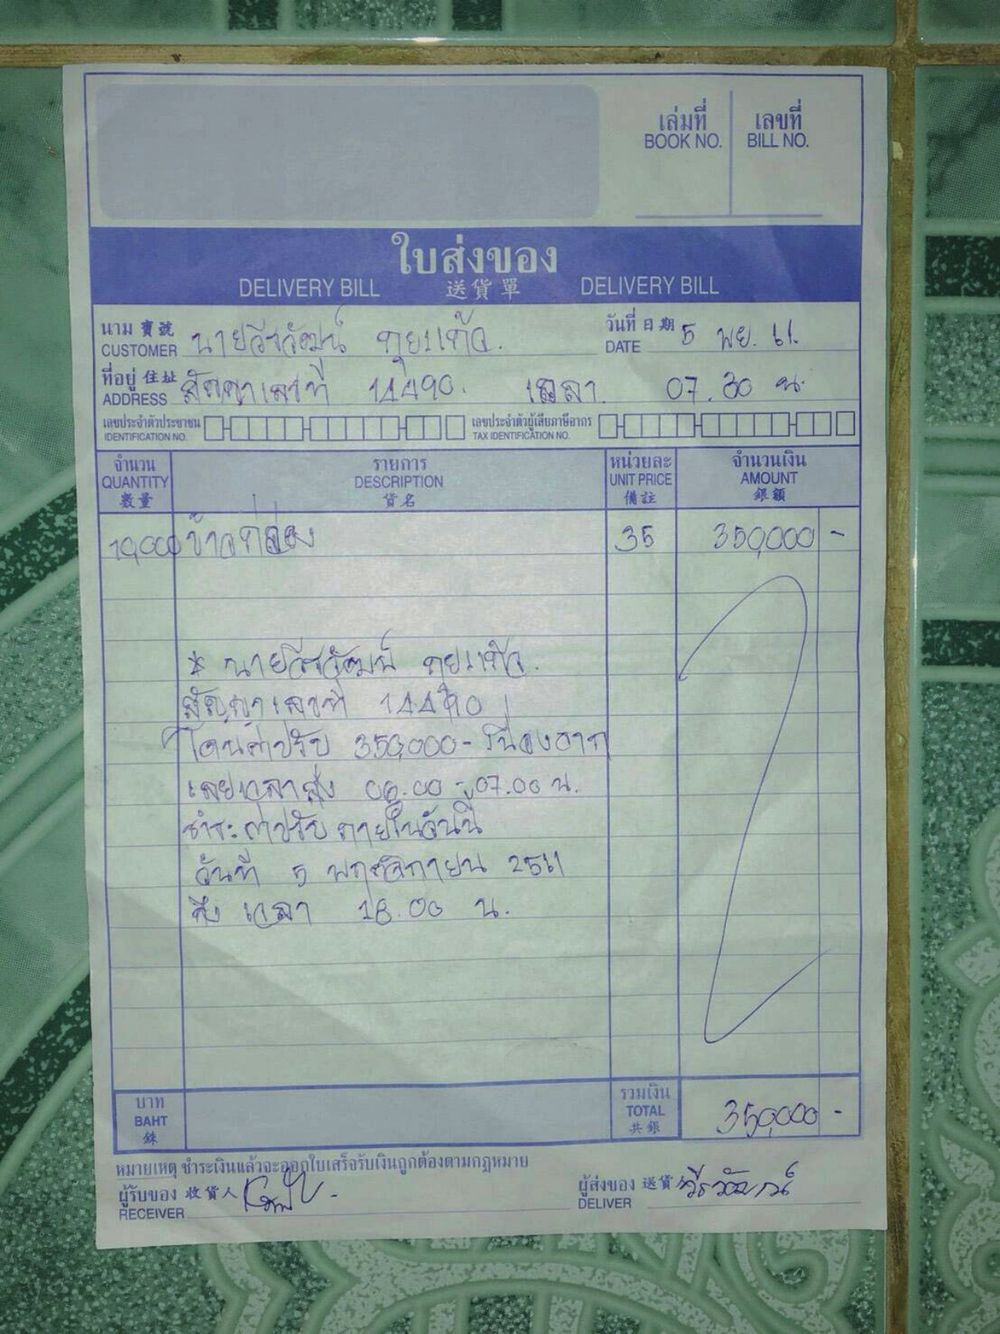 เล่มที่ เลขที่
BOOK NO. BILL NO.
ใบส่งของ
DELIVERY BILL 送貨單 DELIVERY BILL
นาม 寶號 นายวีรวัฒน์ กุยแก้ว. วันที่ 日期 5 พย. 61.
CUSTOMER DATE
ที่อยู่ 住址 สัญญาเลขที่ 14490. เวลา. 07.30 น.
ADDRESS
เลขประจำตัวประชาชน เลขประจำตัวผู้เสียภาษีอากร
IDENTIFICATION NO. TAX IDENTIFICATION NO.
จำนวน รายการ หน่วยละ จำนวนเงิน
QUANTITY DESCRIPTION UNIT PRICE AMOUNT
數量 貨名 備註 銀額
10,000 ข้าวกล่อง 35 350,000 -
* นายวีรวัฒน์ กุยแก้ว.
สัญญาเลขที่ 14490
โดนค่าปรับ 350,000- เนื่องจาก
เลยเวลาส่ง 06.00 - 07.00 น.
ชำระค่าปรับ ภายในวันนี้
วันที่ 5 พฤศจิกายน 2561
ถึง เวลา 18.00 น.
บาท รวมเงิน
BAHT TOTAL 350,000 -
銖 共銀
หมายเหตุ ชำระเงินแล้วจะออกใบเสร็จรับเงินถูกต้องตามกฎหมาย
ผู้รับของ 收貨人 ผู้ส่งของ 送貨人 วีรวัฒน์
RECEIVER DELIVER